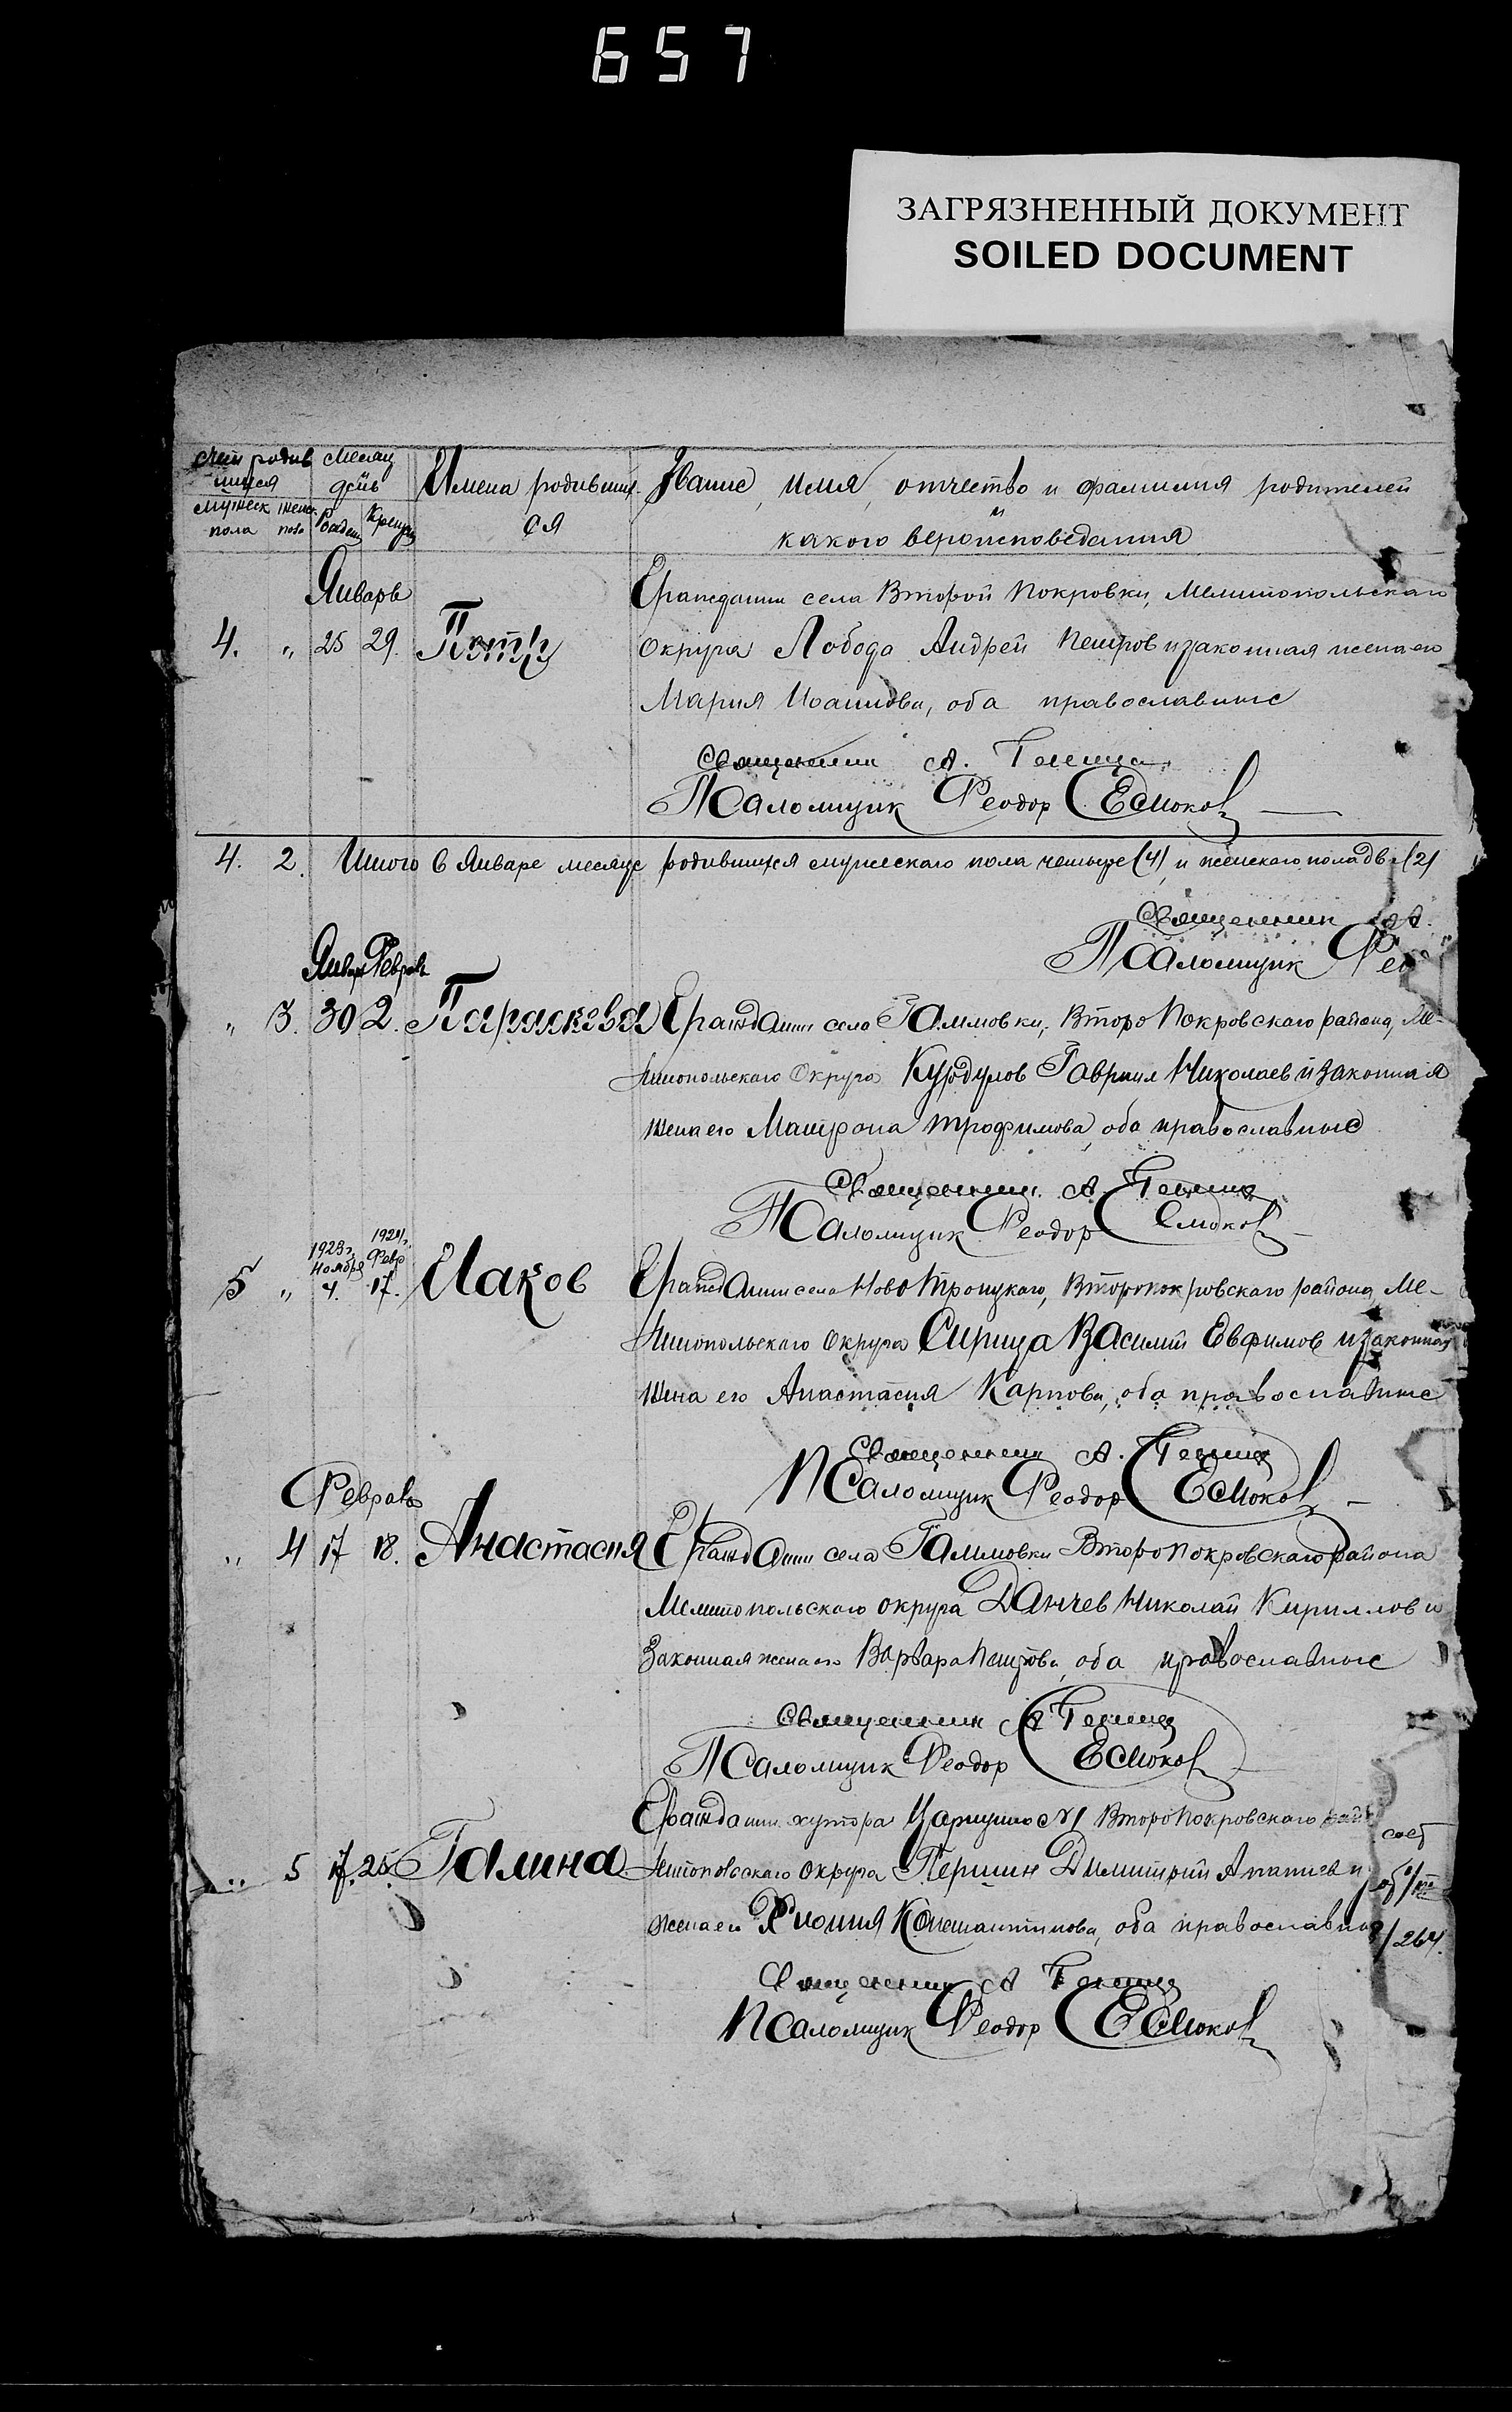 657
ЗАГРЯЗНЕННЫЙ ДОКУМЕНТ
SOILED DOCUMENT
Счет родив
шихся
Месяц
день
Имена родивших
ся
Звание, имя, отчество и фамилия родителей
и
какого вероисповедания
мужеск
пола
женск.
пола
Рожден
Крещен
Январь
4. „ 25 29. Петр
Гражданин села Второй Покровки, Мелитопольскаго
Округа Лобода Андрей Петров и законная жена его
Мария Иоаннова, оба православные
Священник А.
Псаломщик Феодор
4. 2. Итого в Январе месяце родившихся мужескаго пола четыре (4), и женскаго пола две (2)
Священник А.
Псаломщик Фео
Январ Февраль
„ 3. 30 2. Параскева Гражданин села Галмовки, Второ Покровскаго района, Ме-
литопольскаго Округа Курдулов Гавриил Николаев и законная
жена его Матрона Трофимова, оба православные
Священник А.
Псаломщик Феодор
1923 г. Ноября 1924 г. Февр
5 „ 4. 17. Иаков Гражданин села Ново Троицкаго, Второпокровскаго района, Ме-
литопольскаго Округа Сирица Василий Евфимов и законная
жена его Анастасия Карпова, оба православные
Священник А.
Псаломщик Феодор
Февраль
„ 4 17 18. Анастасия Гражданин села Галмовки Второпокровскаго района
Мелитопольскаго округа Данчев Николай Кириллов и
Законная жена его Варвара Петрова, оба православные
Священник А
Псаломщик Феодор
Гражданин хутора №1 Второпокровскаго рай
„ 5 17. 25. Галина литопольскаго округа Першин Димитрий и
жена его Константинова, оба православные
/264.
Священник А
Псаломщик Феодор